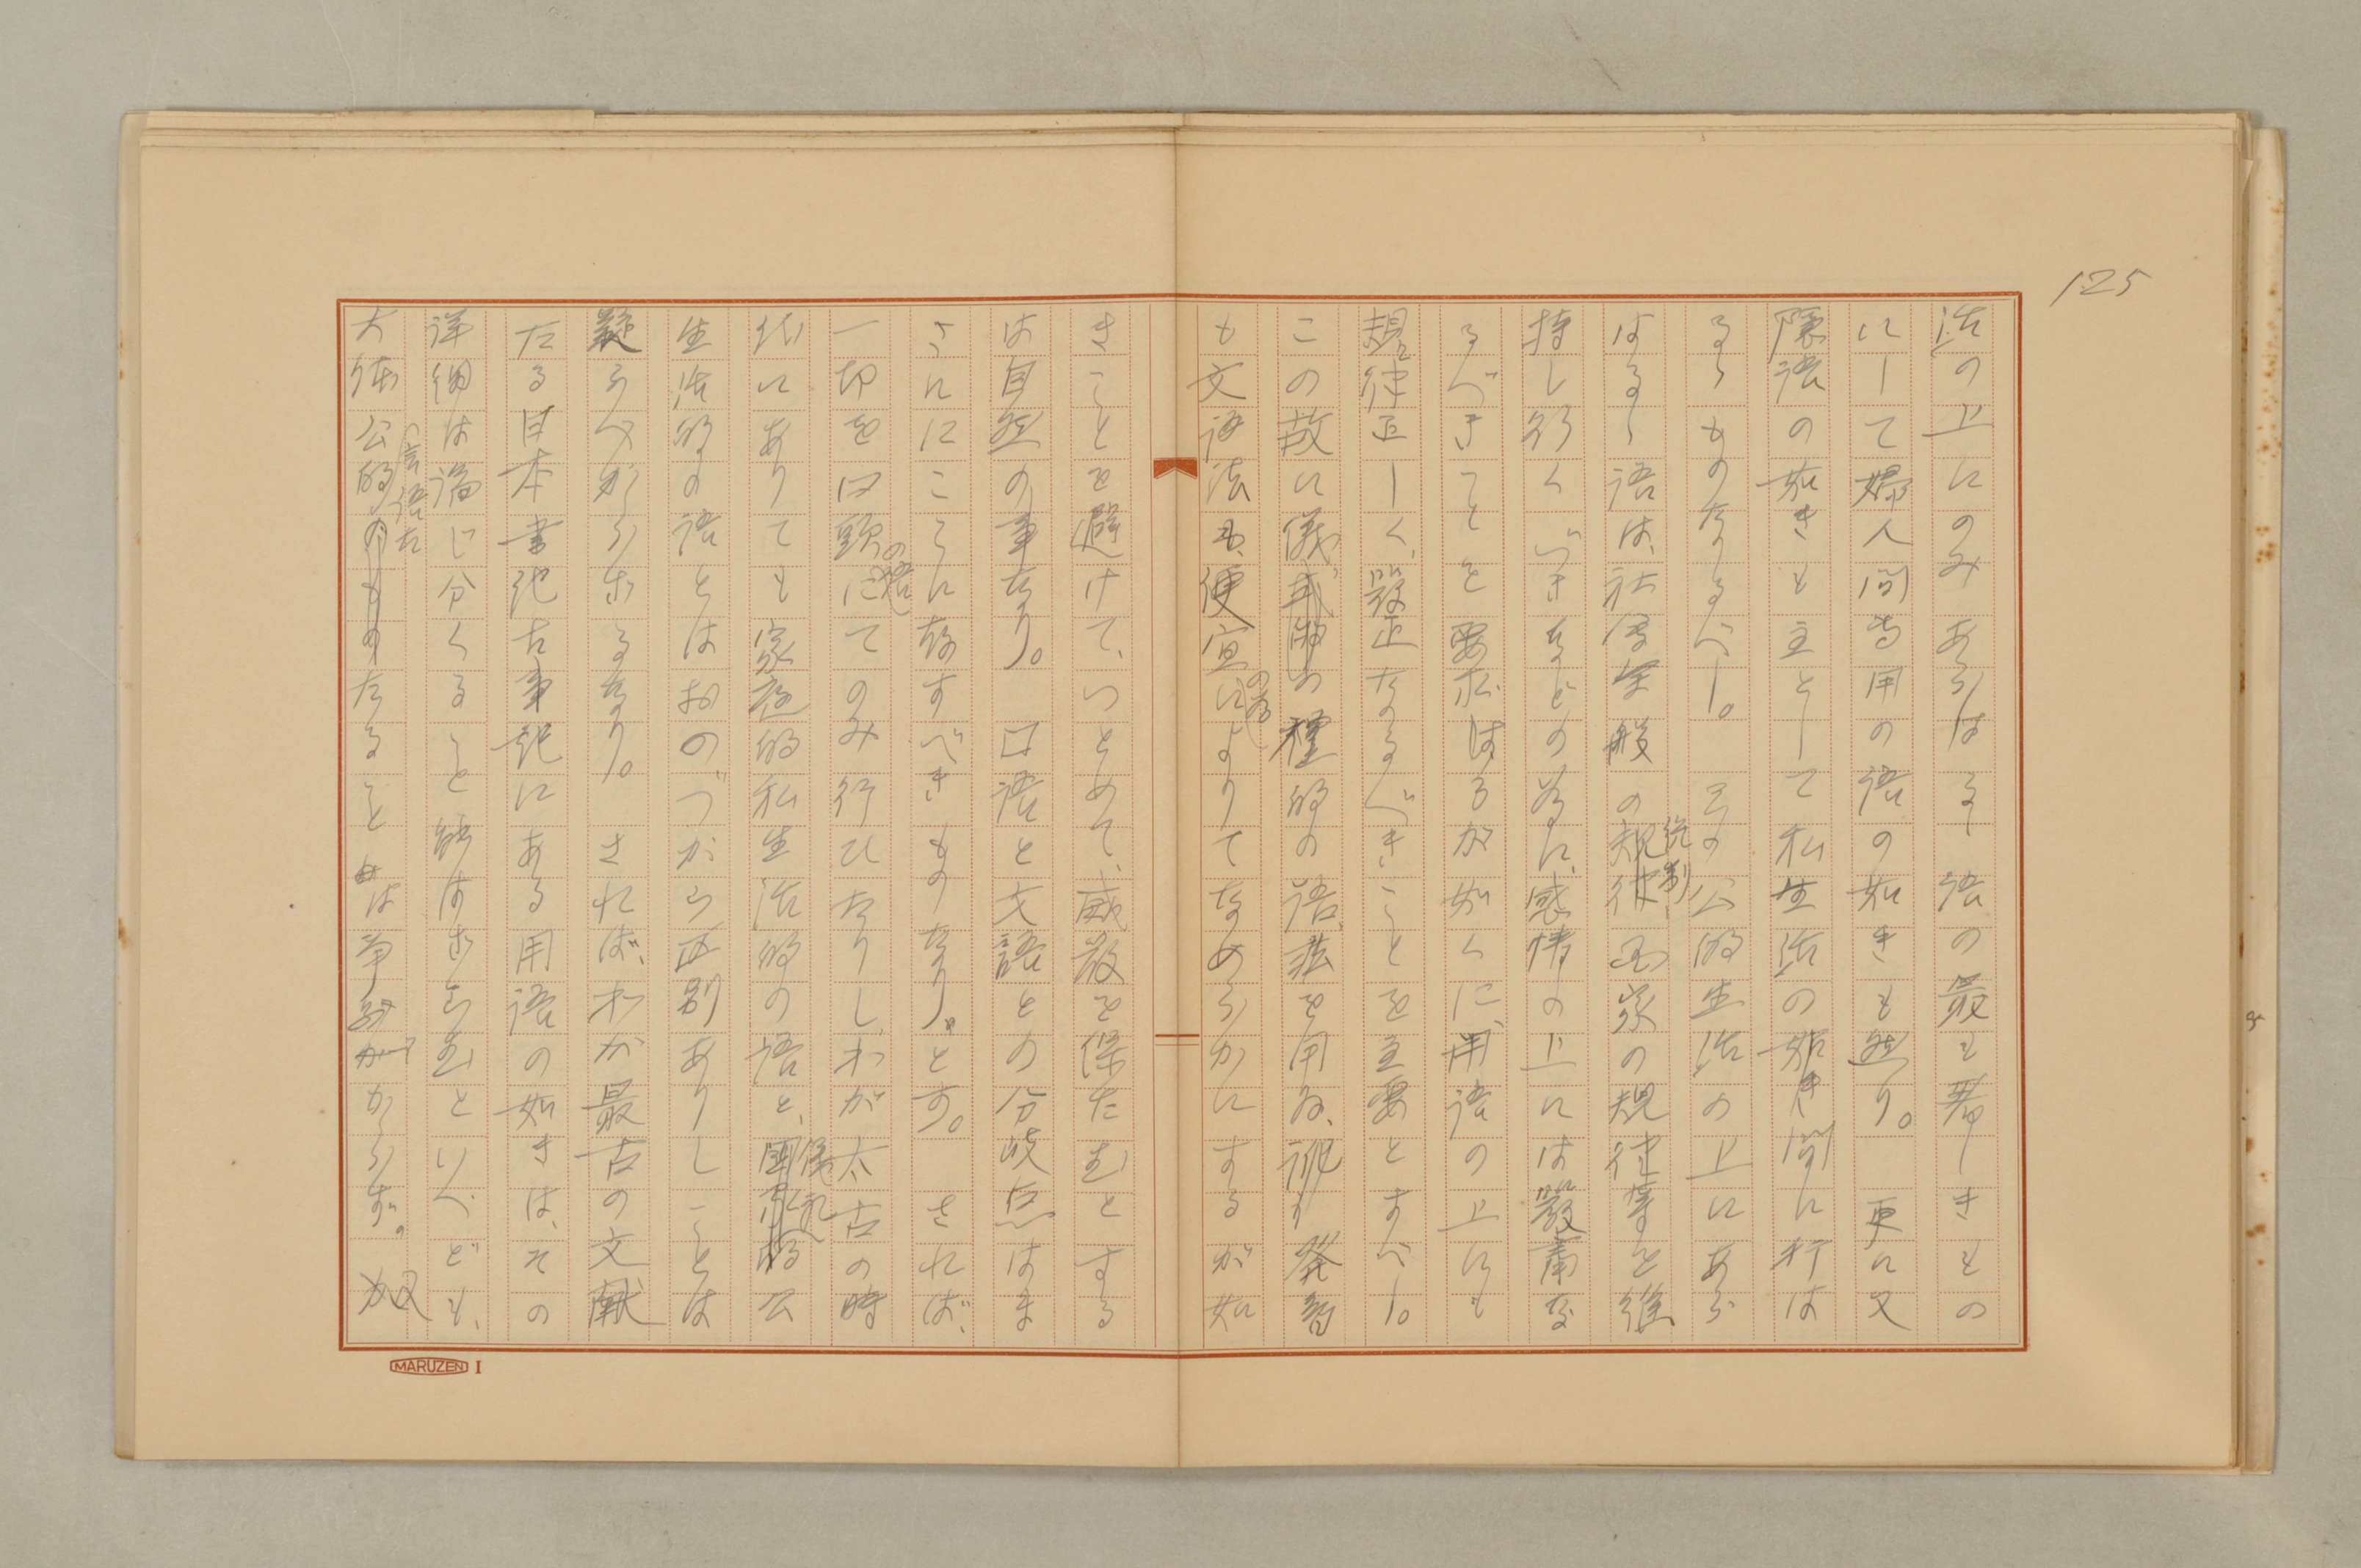 125
活の上にのみあらはるゝ語の最も著しきもの
にして婦人間専用の語の如きも然り。更に又
隠語の如きも主として私生活の如き間に行は
るゝものなるべし。その公的生活の上にあら
はるゝ語は、社会全般の統制、国家の規律等を維
持し行くべきなどの為に、感情の上には厳粛な
るべきことを要求せるが如くに、用語の上にも
規律正しく、厳正なるべきことを主要とすべし。
この故に儀式的の語法を用ゐ、発音
も文語法も、便宜の為によりてなめらかにするが如
きことを避けて、つとめて、威厳を保たむとする
は自然の事なり。口語と文語との分岐点はま
さにこゝに存すべきものなり。とす。されば、
一切を口頭の語にてのみ行ひたりし、わが太古の時
代にありても家庭的私生活的の語と、儀礼的公
生活的の語とはおのづから区別ありしことは
疑ふべからざるなり。されば、わが最古の文献
たる日本書紀古事記にある用語の如きは、その
詳細は論じ分くること能はざらむといへども、
大体公的の言語たることは争ふべからず。
MARUZEN I